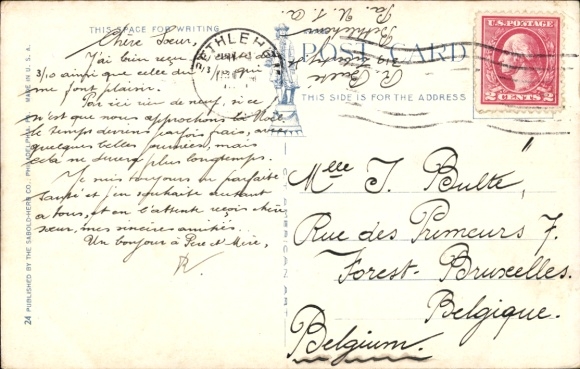 THIS SPACE FOR WRITING
Chère Soeur,
J'ai bien reçu
3/10 ainsi que celle du qui
me font plaisir.
Par ici rien de neuf, si ce
n'est que nous approchons la Noël
le temps devient parfois frais, avec
quelques belles journées, mais
cela ne durera plus longtemps.
Je suis toujours en parfaite
santé et j'en souhaite autant
à tous, et en l'attente reçois chère
soeur, mes sincères amitiés.
Un bonjour à Père et Mère,
R
24 PUBLISHED BY THE SABOLD-HERB CO., PHILADELPHIA, PA. MADE IN U. S. A.
BETHLEHEM
POST CARD
THIS SIDE IS FOR THE ADDRESS
R. Bulte
Bethlehem
Pa. U. S. A.
U.S. POSTAGE
2 CENTS 2
Mlle J. Bulté,
Rue des Primeurs 7.
Forest-Bruxelles.
Belgique.
Belgium.